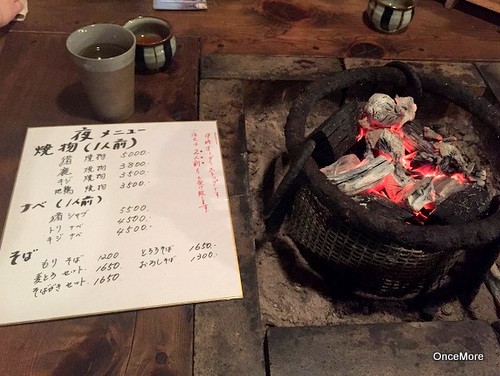 夜メニュー
焼物(1人前)
猪 焼物 5000.
鹿 焼物 3800
キジ 焼物 3500
地鶏 焼物 3500.
ナベ(1人前)
猪シャブ 5500
トリ ナベ 4500.
キジ ナベ 4500.
そば
もり そば 1200 とろろそば 1650.
麦とろ セット. 1650. おろしそば 1300.
そばがき セット. 1650.
OnceMore